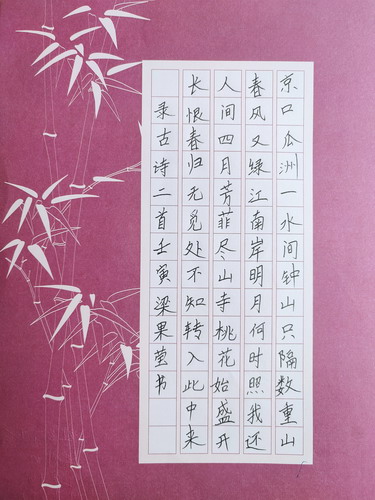 京口瓜洲一水间钟山只隔数重山
春风又绿江南岸明月何时照我还
人间四月芳菲尽山寺桃花始盛开
长恨春归无觅处不知转入此中来
录古诗二首壬寅梁果莹书